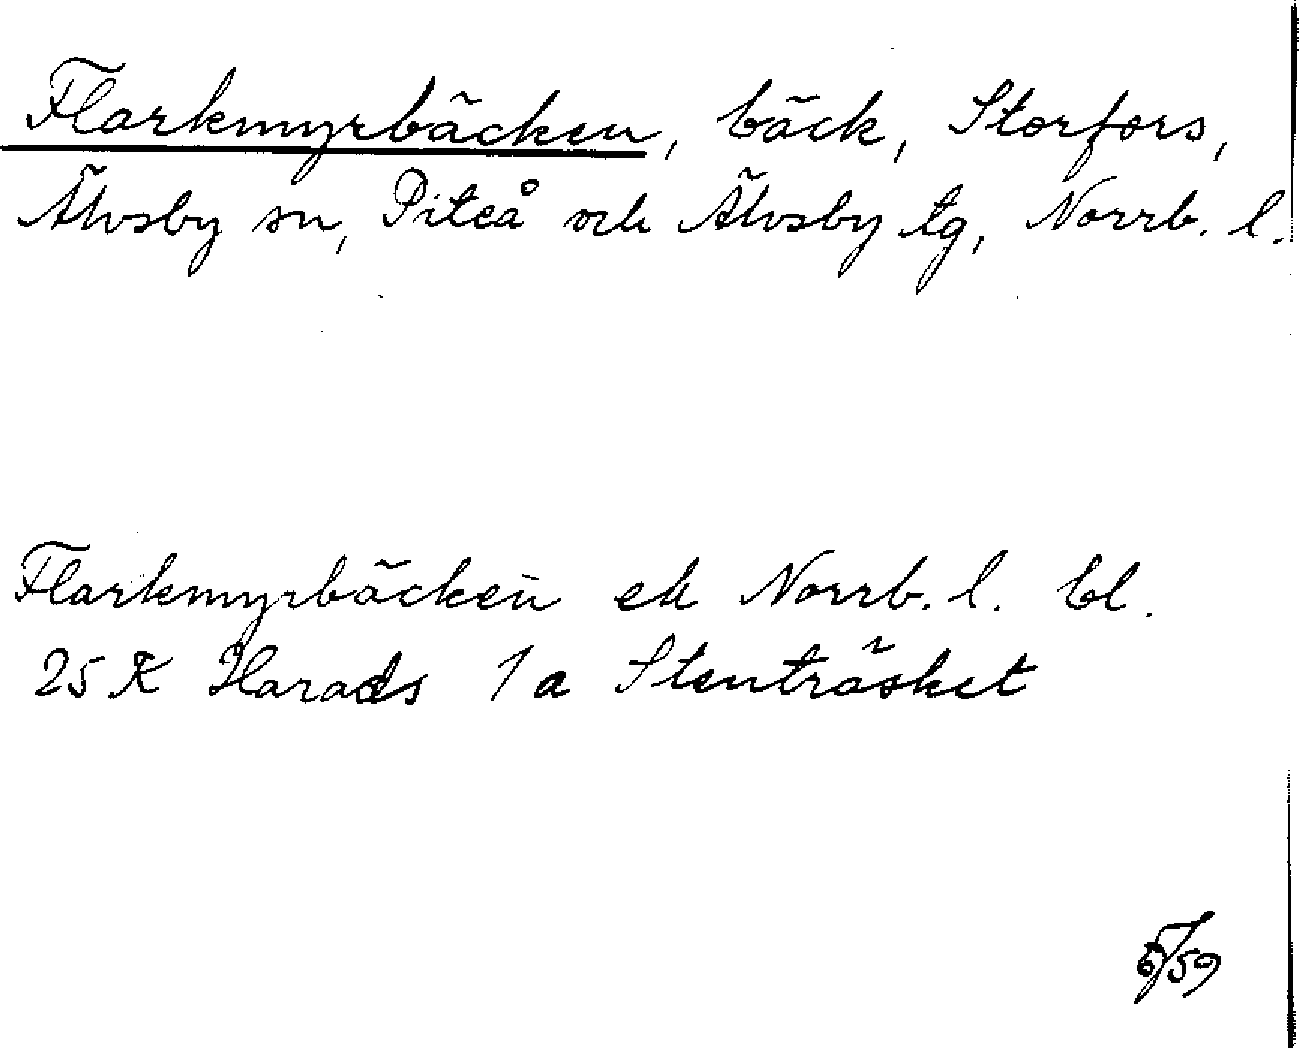 Flarkmyrbäcken, bäck, Storfors,
Älvsby sn, Piteå och Älvsby tg, Norrb. l.
Flarkmyrbäcken ek Norrb. l. bl.
25 K Harads 1 a Stenträsket